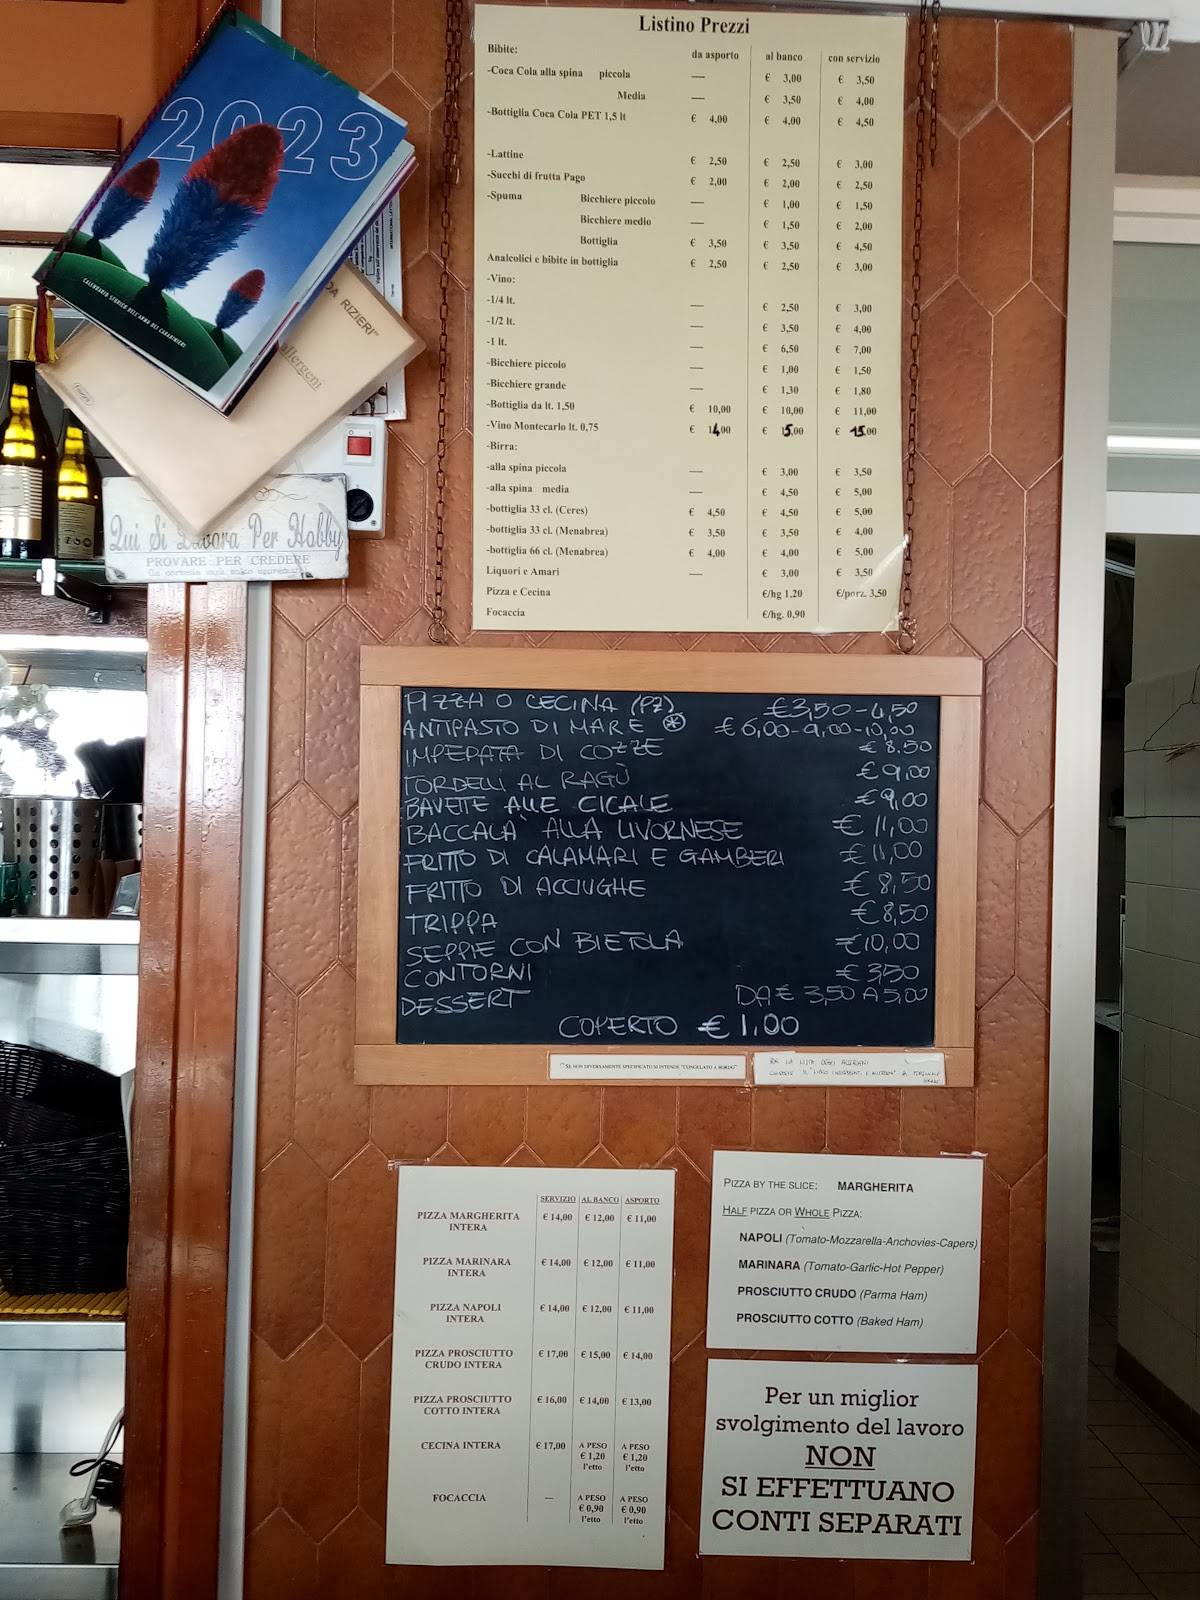 2023
CALENDARIO STORICO DELL'ARMA DEI CARABINIERI
DA RIZIERI"
allergeni
Qui Si Lavora Per Hobby
PROVARE PER CREDERE
Listino Prezzi
Bibite: da asporto al banco con servizio
-Coca Cola alla spina piccola — € 3,00 € 3,50
Media — € 3,50 € 4,00
-Bottiglia Coca Cola PET 1,5 lt € 4,00 € 4,00 € 4,50
-Lattine € 2,50 € 2,50 € 3,00
-Succhi di frutta Pago € 2,00 € 2,00 € 2,50
-Spuma Bicchiere piccolo — € 1,00 € 1,50
Bicchiere medio — € 1,50 € 2,00
Bottiglia € 3,50 € 3,50 € 4,50
Analcolici e bibite in bottiglia € 2,50 € 2,50 € 3,00
-Vino:
-1/4 lt. — € 2,50 € 3,00
-1/2 lt. — € 3,50 € 4,00
-1 lt. — € 6,50 € 7,00
-Bicchiere piccolo — € 1,00 € 1,50
-Bicchiere grande — € 1,30 € 1,80
-Bottiglia da lt. 1,50 € 10,00 € 10,00 € 11,00
-Vino Montecarlo lt. 0,75 € 14,00 € 15,00 € 15,00
-Birra:
-alla spina piccola — € 3,00 € 3,50
-alla spina media — € 4,50 € 5,00
-bottiglia 33 cl. (Ceres) € 4,50 € 4,50 € 5,00
-bottiglia 33 cl. (Menabrea) € 3,50 € 3,50 € 4,00
-bottiglia 66 cl. (Menabrea) € 4,00 € 4,00 € 5,00
Liquori e Amari — € 3,00 € 3,50
Pizza e Cecina €/hg 1,20 €/porz. 3,50
Focaccia €/hg. 0,90
PIZZA O CECINA (PZ) €3,50-4,50
ANTIPASTO DI MARE * €6,00-9,00-10,00
IMPEPATA DI COZZE €8.50
TORDELLI AL RAGÙ €9,00
BAVETTE ALLE CICALE €9,00
BACCALA' ALLA LIVORNESE €11,00
FRITTO DI CALAMARI E GAMBERI €11,00
FRITTO DI ACCIUGHE €8,50
TRIPPA €8,50
SEPPIE CON BIETOLA €10,00
CONTORNI €3,50
DESSERT DA € 3,50 A 5,00
COPERTO €1,00
"* SE NON DIVERSAMENTE SPECIFICATO SI INTENDE "CONGELATO A BORDO"
PER LA LISTA DEGLI ALLERGENI
SERVIZIO AL BANCO ASPORTO
PIZZA MARGHERITA INTERA € 14,00 € 12,00 € 11,00
PIZZA MARINARA INTERA € 14,00 € 12,00 € 11,00
PIZZA NAPOLI INTERA € 14,00 € 12,00 € 11,00
PIZZA PROSCIUTTO CRUDO INTERA € 17,00 € 15,00 € 14,00
PIZZA PROSCIUTTO COTTO INTERA € 16,00 € 14,00 € 13,00
CECINA INTERA € 17,00 A PESO € 1,20 l'etto A PESO € 1,20 l'etto
FOCACCIA — A PESO € 0,90 l'etto A PESO € 0,90 l'etto
PIZZA BY THE SLICE: MARGHERITA
HALF PIZZA OR WHOLE PIZZA:
NAPOLI (Tomato-Mozzarella-Anchovies-Capers)
MARINARA (Tomato-Garlic-Hot Pepper)
PROSCIUTTO CRUDO (Parma Ham)
PROSCIUTTO COTTO (Baked Ham)
Per un miglior
svolgimento del lavoro
NON
SI EFFETTUANO
CONTI SEPARATI